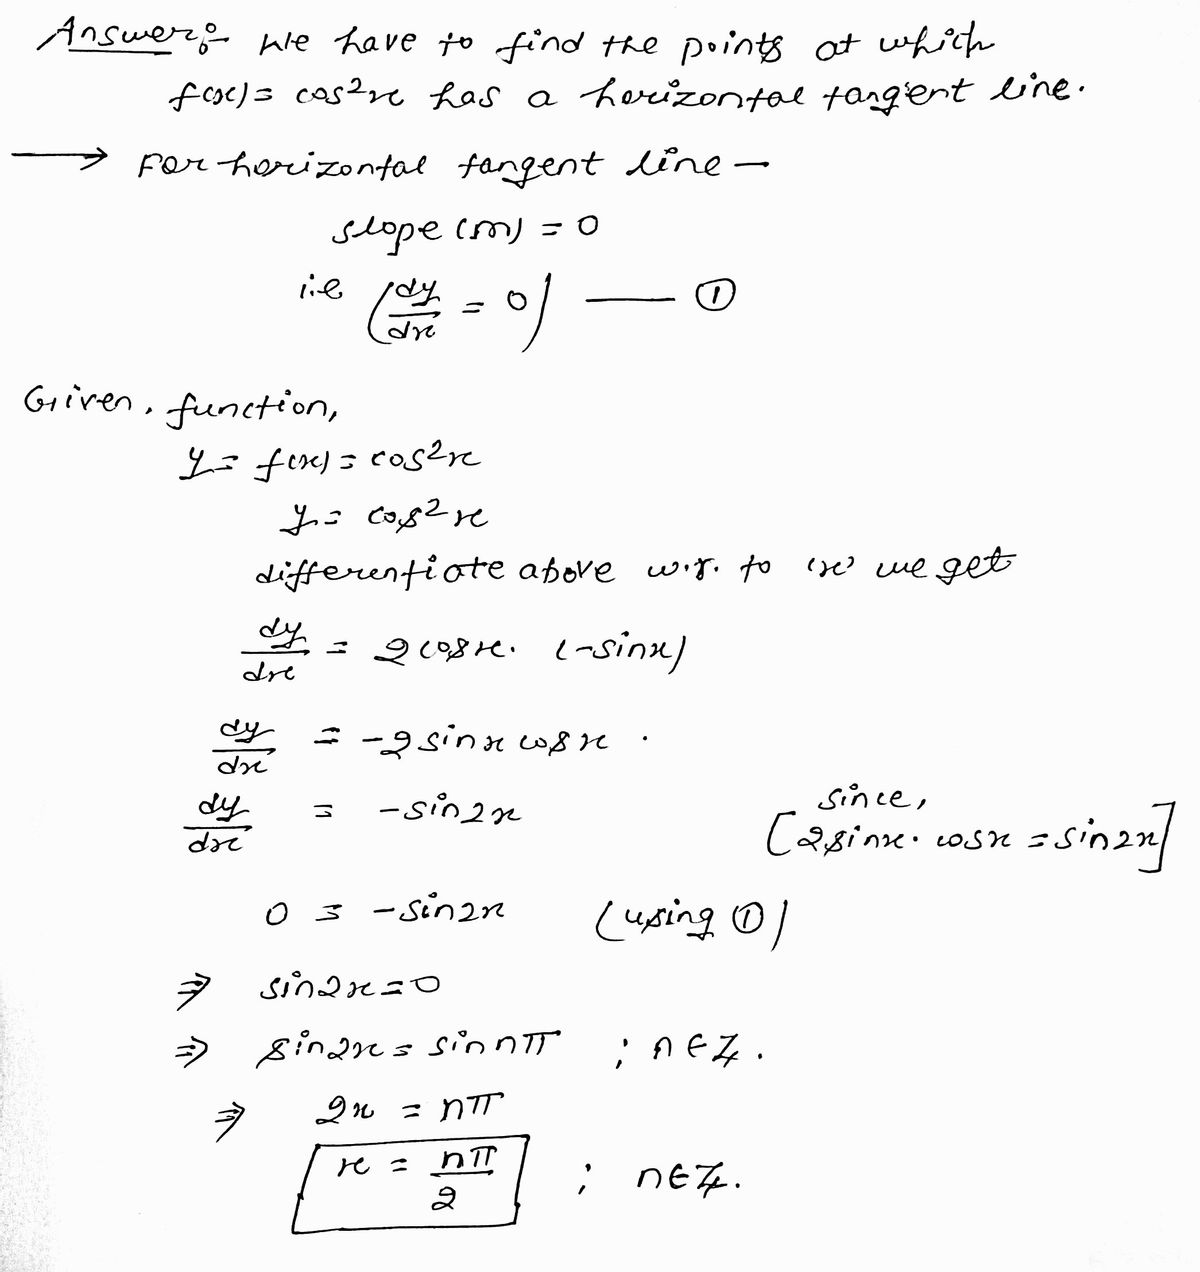 Answer:- We have to find the points at which
f(x) = cos²x has a horizontal tangent line.
→ For horizontal tangent line —
slope (m) = 0
i.e (dy/dx = 0) —— ①
Given, function,
y = f(x) = cos²x
y = cos²x
differentiate above w.r. to 'x' we get
dy/dx = 2cosx. (-sinx)
dy/dx = -2sinx cosx .
dy/dx = -sin2x
since,
[2sinx. cosx = sin2x]
0 = -sin2x (using ①)
⇒ sin2x = 0
⇒ sin2x = sin nπ ; n∈Z.
⇒ 2x = nπ
x = nπ/2 ; n∈Z.